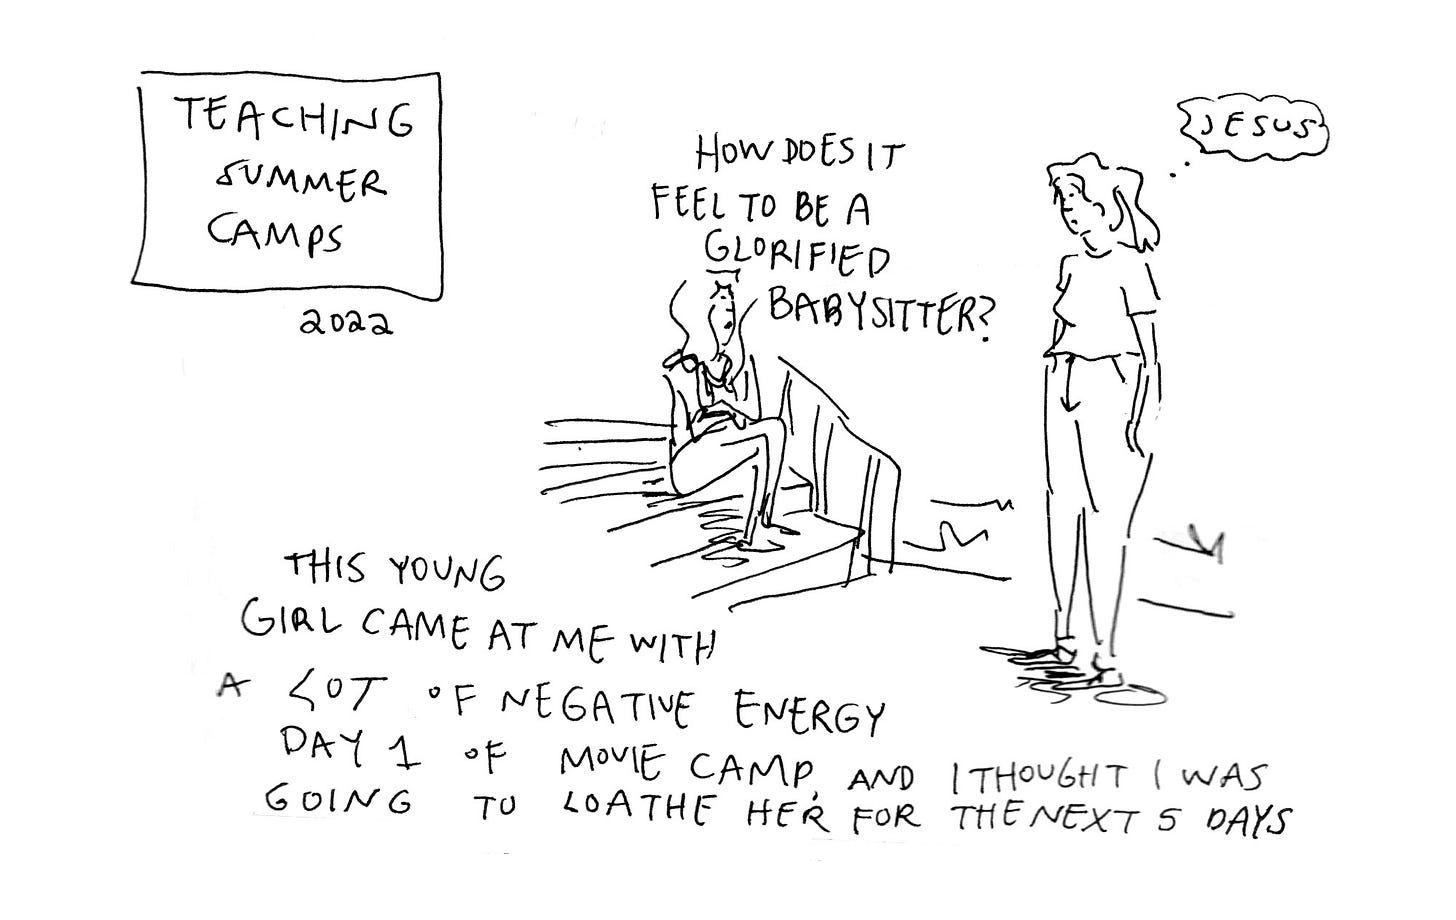 TEACHING
SUMMER
CAMPS
2022
HOW DOES IT
FEEL TO BE A
GLORIFIED
BABYSITTER?
JESUS
THIS YOUNG
GIRL CAME AT ME WITH
A LOT OF NEGATIVE ENERGY
DAY 1 OF MOVIE CAMP, AND I THOUGHT I WAS
GOING TO LOATHE HER FOR THE NEXT 5 DAYS